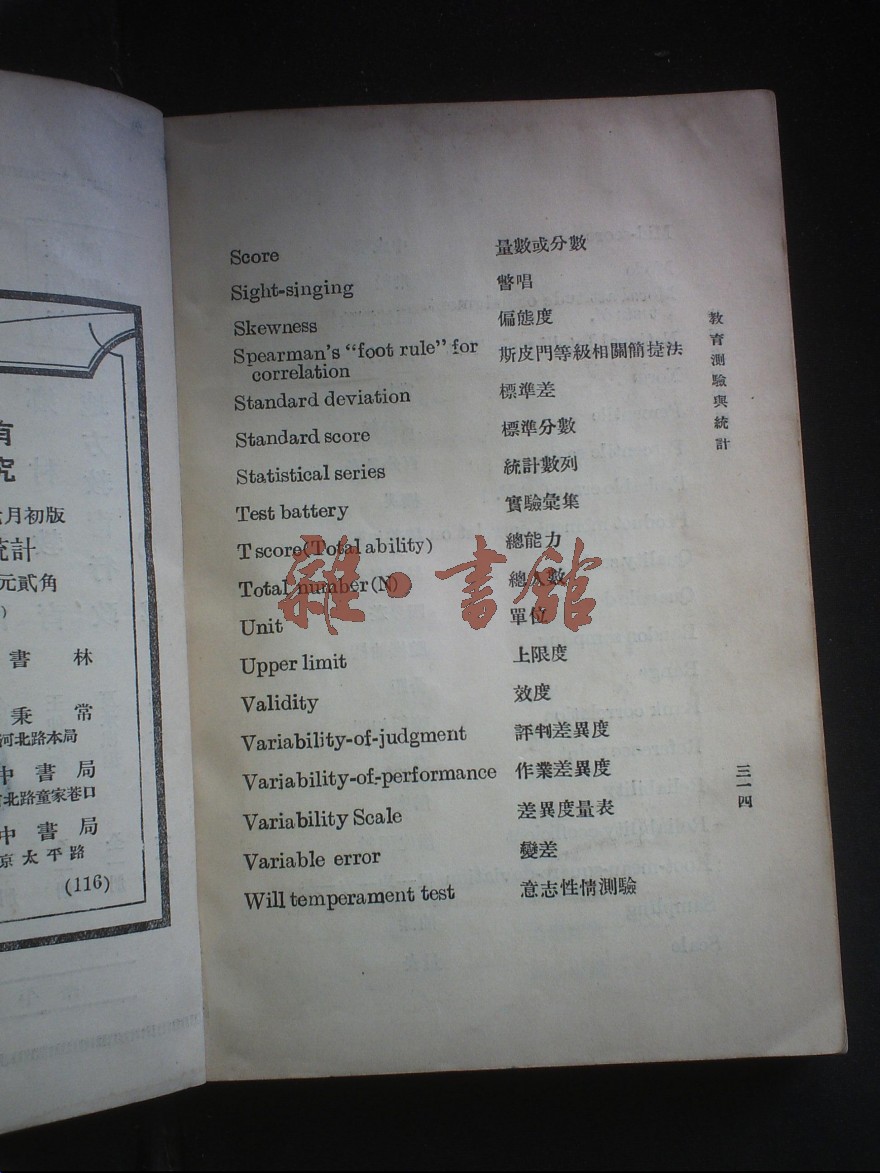 Score 量數或分數
Sight-singing 瞥唱
Skewness 偏態度
Spearman's "foot rule" for
correlation 斯皮門等級相關簡捷法
Standard deviation 標準差
Standard score 標準分數
Statistical series 統計數列
Test battery 實驗彙集
T score(Total ability) 總能力
Total number(N) 總人數
Unit 單位
Upper limit 上限度
Validity 效度
Variability-of-judgment 評判差異度
Variability-of-performance 作業差異度
Variability Scale 差異度量表
Variable error 變差
Will temperament test 意志性情測驗
教育測驗與統計
三一四
雜·書館
究
月初版
統計
元貳角
書林
秉常
河北路本局
中書局
北路童家巷口
中書局
京太平路
(116)